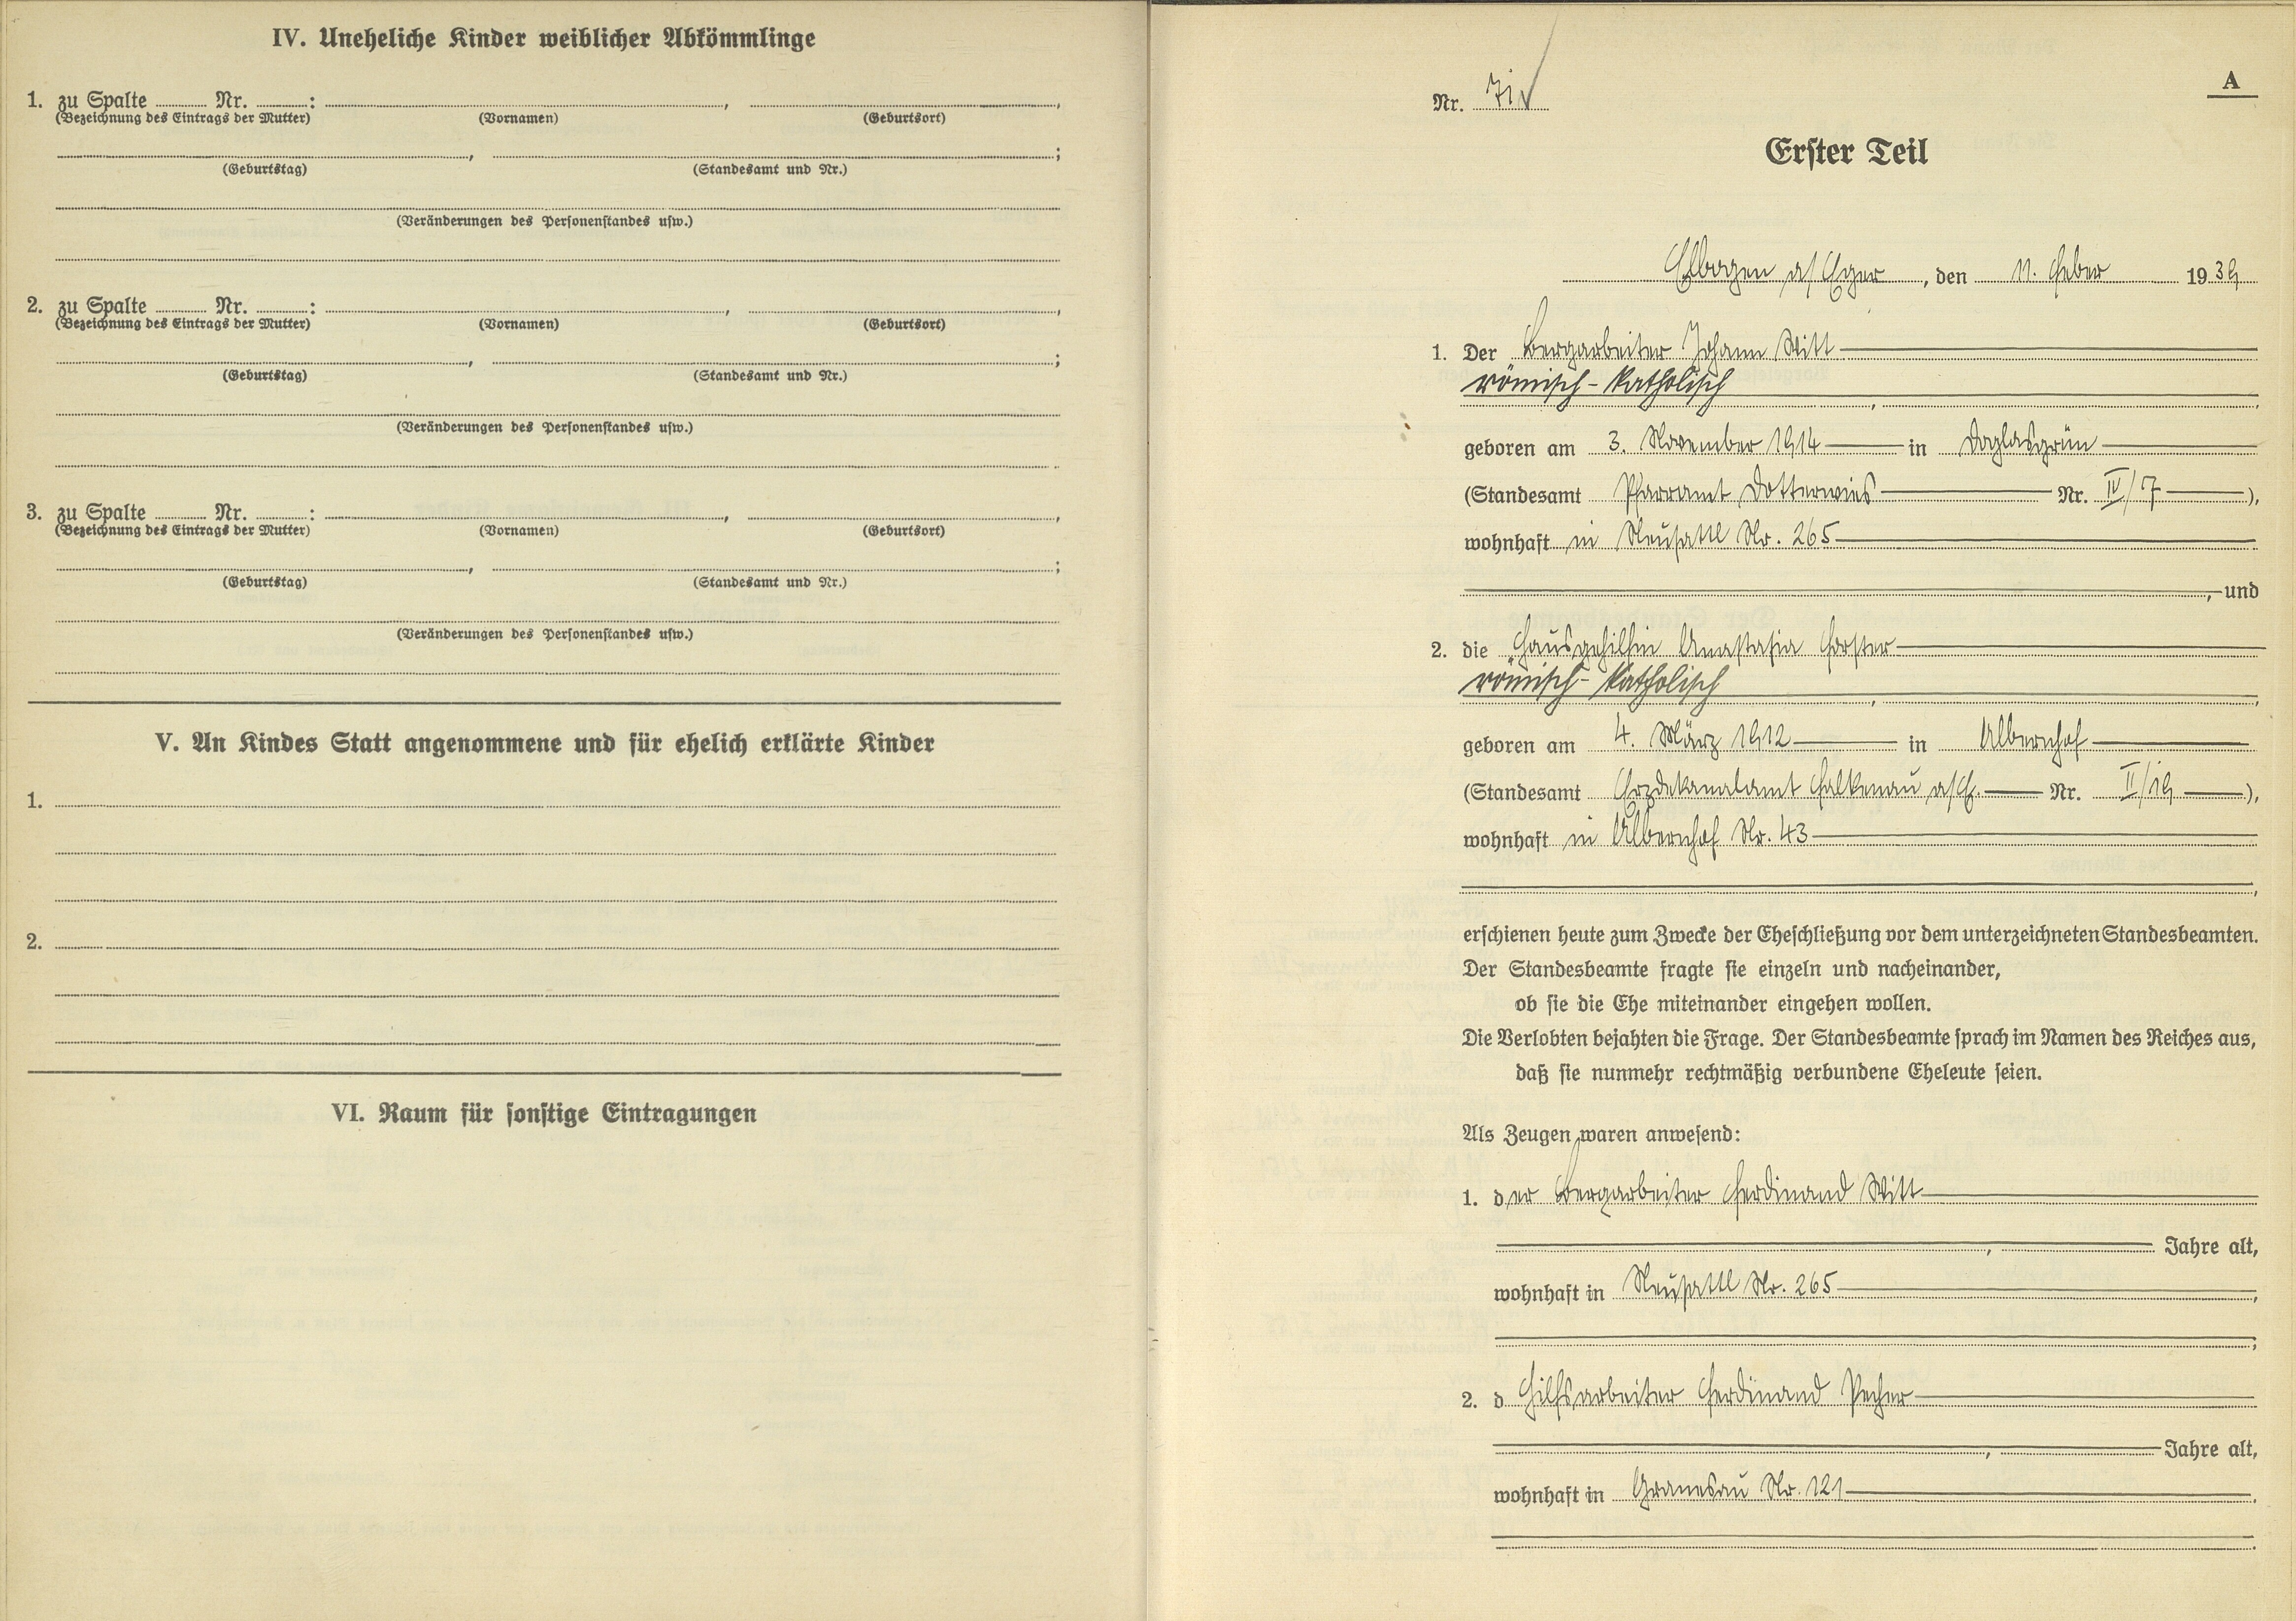 IV. Uneheliche Kinder weiblicher Abkömmlinge
1. zu Spalte ........ Nr. ........: ........, ........,
(Bezeichnung des Eintrags der Mutter) (Vornamen) (Geburtsort)
........, ........;
(Geburtstag) (Standesamt und Nr.)
(Veränderungen des Personenstandes usw.)
2. zu Spalte ........ Nr. ........: ........, ........,
(Bezeichnung des Eintrags der Mutter) (Vornamen) (Geburtsort)
........, ........;
(Geburtstag) (Standesamt und Nr.)
(Veränderungen des Personenstandes usw.)
3. zu Spalte ........ Nr. ........: ........, ........,
(Bezeichnung des Eintrags der Mutter) (Vornamen) (Geburtsort)
........, ........;
(Geburtstag) (Standesamt und Nr.)
(Veränderungen des Personenstandes usw.)
V. An Kindes Statt angenommene und für ehelich erklärte Kinder
1.
2.
VI. Raum für sonstige Eintragungen
A
Nr. 71
Erster Teil
Elbogen a/Eger, den 11. Feber 1939
1. Der Bergarbeiter Johann Witt
römisch-katholisch
geboren am 3. November 1914 in Doglasgrün
(Standesamt Pfarramt Dotterwies Nr. IV/7),
wohnhaft in Neusattl Nr. 265
, und
2. die Hausgehilfin Anastasia Forster
römisch-katholisch
geboren am 4. März 1912 in Albernhof
(Standesamt Erzdekanalamt Falkenau a/E. Nr. II/19),
wohnhaft in Albernhof Nr. 43
erschienen heute zum Zwecke der Eheschließung vor dem unterzeichneten Standesbeamten.
Der Standesbeamte fragte sie einzeln und nacheinander,
ob sie die Ehe miteinander eingehen wollen.
Die Verlobten bejahten die Frage. Der Standesbeamte sprach im Namen des Reiches aus,
daß sie nunmehr rechtmäßig verbundene Eheleute seien.
Als Zeugen waren anwesend:
1. der Bergarbeiter Ferdinand Witt
, Jahre alt,
wohnhaft in Neusattl Nr. 265,
;
2. d Hilfsarbeiter Ferdinand Pecher
, Jahre alt,
wohnhaft in Granesau Nr. 121.